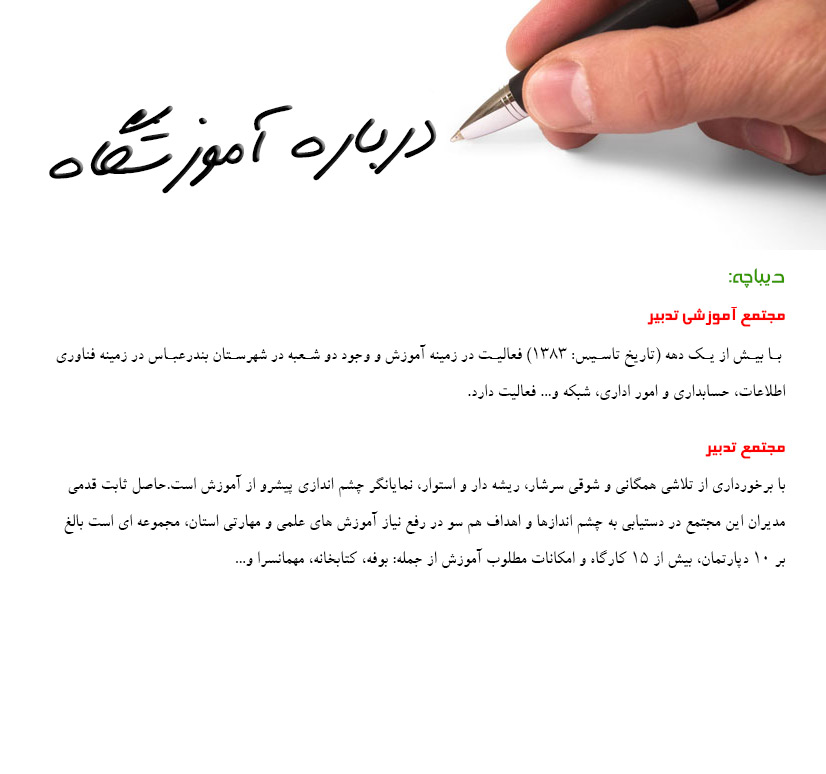 درباره آموزشگاه
دیباچه:
مجتمع آموزشی تدبیر
بـا بیـش از یـک دهه (تاریخ تاسـیس: ۱۳۸۳) فعالیـت در زمینه آموزش و وجود دو شـعبه در شهرسـتان بندرعبـاس در زمینه فناوری
اطلاعات، حسابداری و امور اداری، شبکه و... فعالیت دارد.
مجتمع تدبیر
با برخورداری از تلاشی همگانی و شوقی سرشار، ریشه دار و استوار، نمایانگر چشم اندازی پیشرو از آموزش است.حاصل ثابت قدمی
مدیران این مجتمع در دستیابی به چشم اندازها و اهداف هم سو در رفع نیاز آموزش های علمی و مهارتی استان، مجموعه ای است بالغ
بر ۱۰ دپارتمان، بیش از ۱۵ کارگاه و امکانات مطلوب آموزش از جمله: بوفه، کتابخانه، مهمانسرا و...